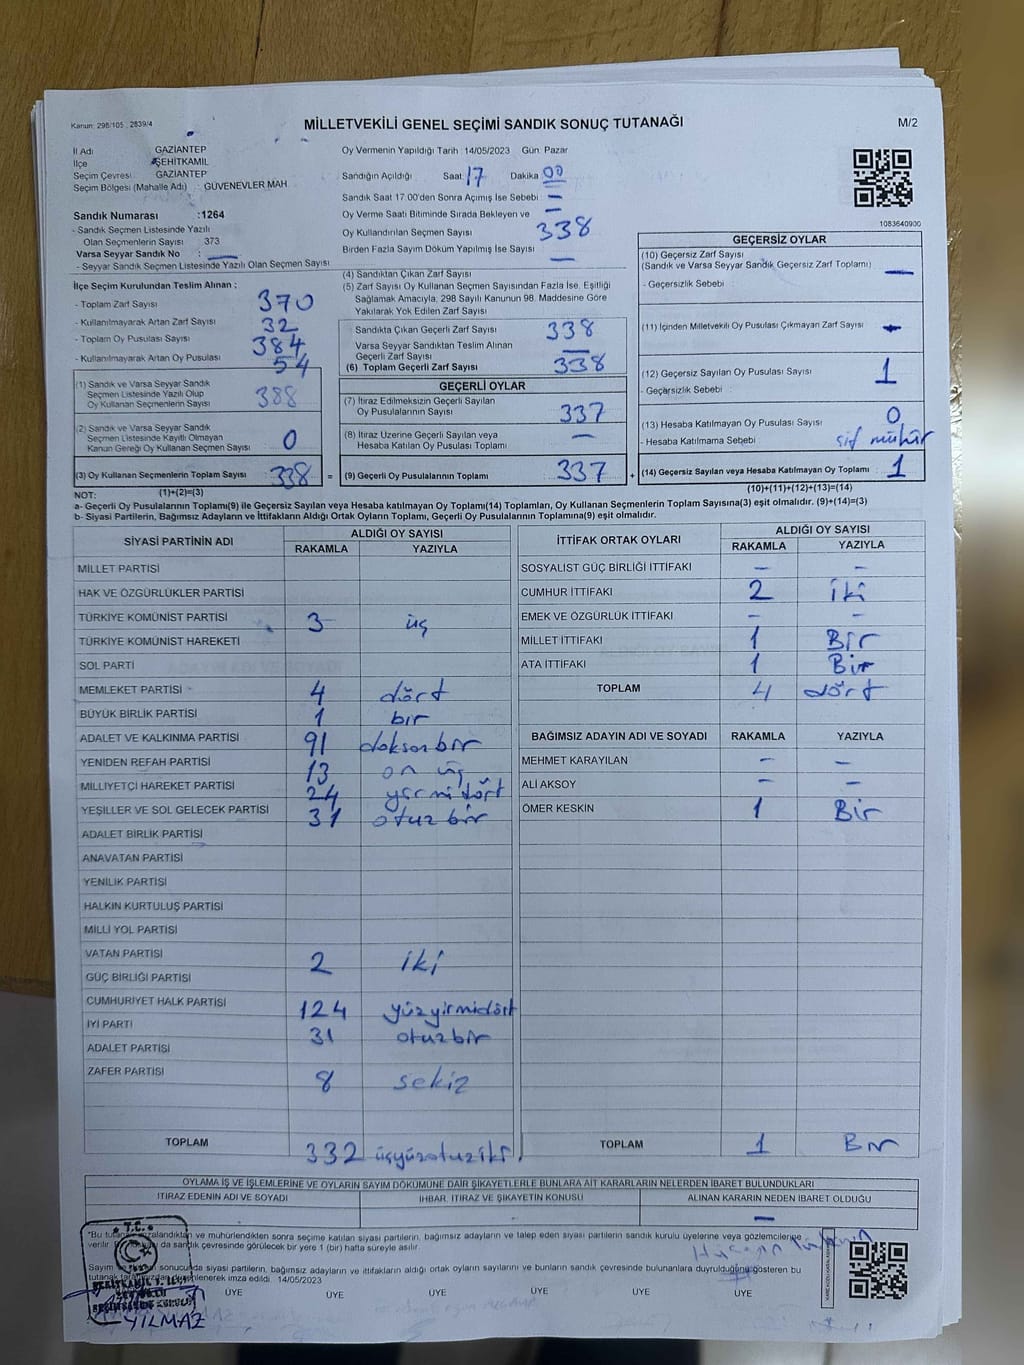 Kanun: 298/105 , 2839/4
MİLLETVEKİLİ GENEL SEÇİMİ SANDIK SONUÇ TUTANAĞI
M/2
İl Adı GAZİANTEP
İlçe ŞEHİTKAMİL
Seçim Çevresi GAZİANTEP
Seçim Bölgesi (Mahalle Adı) : GÜVENEVLER MAH
Oy Vermenin Yapıldığı Tarih : 14/05/2023 Gün: Pazar
Sandığın Açıldığı Saat 17 Dakika 00
Sandık Saat 17.00'den Sonra Açımış İse Sebebi —
Oy Verme Saati Bitiminde Sırada Bekleyen ve —
Oy Kullandırılan Seçmen Sayısı 338
Birden Fazla Sayım Döküm Yapılmış İse Sayısı —
1083640900
Sandık Numarası :1264
- Sandık Seçmen Listesinde Yazılı
Olan Seçmenlerin Sayısı 373
Varsa Seyyar Sandık No : —
- Seyyar Sandık Seçmen Listesinde Yazılı Olan Seçmen Sayısı
İlçe Seçim Kurulundan Teslim Alınan ;
- Toplam Zarf Sayısı 370
- Kullanılmayarak Artan Zarf Sayısı 32
- Toplam Oy Pusulası Sayısı 384
- Kullanılmayarak Artan Oy Pusulası 54
(1) Sandık ve Varsa Seyyar Sandık
Seçmen Listesinde Yazılı Olup
Oy Kullanan Seçmenlerin Sayısı 388
(2) Sandık ve Varsa Seyyar Sandık
Seçmen Listesinde Kayıtlı Olmayan
Kanun Gereği Oy Kullanan Seçmen Sayısı 0
(3) Oy Kullanan Seçmenlerin Toplam Sayısı 338 =
(1)+(2)=(3)
(4) Sandıktan Çıkan Zarf Sayısı
(5) Zarf Sayısı Oy Kullanan Seçmen Sayısından Fazla İse, Eşitliği
Sağlamak Amacıyla, 298 Sayılı Kanunun 98. Maddesine Göre
Yakılarak Yok Edilen Zarf Sayısı
Sandıkta Çıkan Geçerli Zarf Sayısı 338
Varsa Seyyar Sandıktan Teslim Alınan
Geçerli Zarf Sayısı —
(6) Toplam Geçerli Zarf Sayısı 338
GEÇERLİ OYLAR
(7) İtiraz Edilmeksizin Geçerli Sayılan
Oy Pusulalarının Sayısı 337
(8) İtiraz Üzerine Geçerli Sayılan veya
Hesaba Katılan Oy Pusulası Toplamı —
(9) Geçerli Oy Pusulalarının Toplamı 337 +
GEÇERSİZ OYLAR
(10) Geçersiz Zarf Sayısı
(Sandık ve Varsa Seyyar Sandık Geçersiz Zarf Toplamı) —
- Geçersizlik Sebebi :
(11) İçinden Milletvekili Oy Pusulası Çıkmayan Zarf Sayısı —
(12) Geçersiz Sayılan Oy Pusulası Sayısı 1
- Geçersizlik Sebebi :
(13) Hesaba Katılmayan Oy Pusulası Sayısı 0
- Hesaba Katılmama Sebebi : mühür
(14) Geçersiz Sayılan veya Hesaba Katılmayan Oy Toplamı 1
(10)+(11)+(12)+(13)=(14)
NOT:
a- Geçerli Oy Pusulalarının Toplamı(9) ile Geçersiz Sayılan veya Hesaba katılmayan Oy Toplamı(14) Toplamları, Oy Kullanan Seçmenlerin Toplam Sayısına(3) eşit olmalıdır. (9)+(14)=(3)
b- Siyasi Partilerin, Bağımsız Adayların ve İttifakların Aldığı Ortak Oyların Toplamı, Geçerli Oy Pusulalarının Toplamına(9) eşit olmalıdır.
SİYASİ PARTİNİN ADI ALDIĞI OY SAYISI
RAKAMLA YAZIYLA
MİLLET PARTİSİ
HAK VE ÖZGÜRLÜKLER PARTİSİ
TÜRKİYE KOMÜNİST PARTİSİ 3 üç
TÜRKİYE KOMÜNİST HAREKETİ
SOL PARTİ
MEMLEKET PARTİSİ 4 dört
BÜYÜK BİRLİK PARTİSİ 1 bir
ADALET VE KALKINMA PARTİSİ 91 doksanbir
YENİDEN REFAH PARTİSİ 13 on üç
MİLLİYETÇİ HAREKET PARTİSİ 24 yirmidört
YEŞİLLER VE SOL GELECEK PARTİSİ 31 otuzbir
ADALET BİRLİK PARTİSİ
ANAVATAN PARTİSİ
YENİLİK PARTİSİ
HALKIN KURTULUŞ PARTİSİ
MİLLİ YOL PARTİSİ
VATAN PARTİSİ 2 iki
GÜÇ BİRLİĞİ PARTİSİ
CUMHURİYET HALK PARTİSİ 124 yüzyirmidört
İYİ PARTİ 31 otuzbir
ADALET PARTİSİ
ZAFER PARTİSİ 8 sekiz
TOPLAM 332 üçyüzotuziki
İTTİFAK ORTAK OYLARI ALDIĞI OY SAYISI
RAKAMLA YAZIYLA
SOSYALİST GÜÇ BİRLİĞİ İTTİFAKI — —
CUMHUR İTTİFAKI 2 iki
EMEK VE ÖZGÜRLÜK İTTİFAKI — —
MİLLET İTTİFAKI 1 Bir
ATA İTTİFAKI 1 Bir
TOPLAM 4 dört
BAĞIMSIZ ADAYIN ADI VE SOYADI RAKAMLA YAZIYLA
MEHMET KARAYILAN — —
ALİ AKSOY — —
ÖMER KESKİN 1 Bir
TOPLAM 1 Bir
OYLAMA İŞ VE İŞLEMLERİNE VE OYLARIN SAYIM DÖKÜMÜNE DAİR ŞİKAYETLERLE BUNLARA AİT KARARLARIN NELERDEN İBARET BULUNDUKLARI
İTİRAZ EDENİN ADI VE SOYADI İHBAR, İTİRAZ VE ŞİKAYETİN KONUSU ALINAN KARARIN NEDEN İBARET OLDUĞU
—
*Bu imzalandıktan ve mühürlendikten sonra seçime katılan siyasi partilerin, bağımsız adayların ve talep eden siyasi partilerin sandık kurulu üyelerine veya gözlemcilerine
verilir. da sandık çevresinde görülecek bir yere 1 (bir) hafta süreyle asılır.
Sayım sonucunda siyasi partilerin, bağımsız adayların ve ittifakların aldığı ortak oyların sayılarını ve bunların sandık çevresinde bulunanlara duyrulduğunu gösteren bu
tutanak düzenlenerek imza edildi. 14/05/2023
ÜYE ÜYE ÜYE ÜYE ÜYE ÜYE
T.C.
YILMAZ